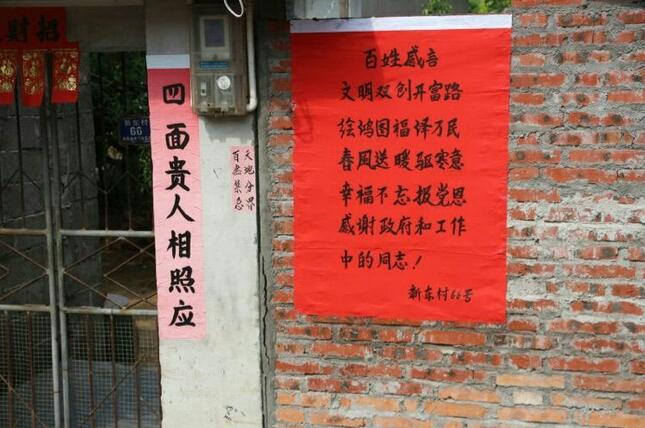 招财
四面贵人相照应
新东村
66
天地分界
百无禁忌
百姓感言
文明双创开富路
绘鸿图福泽万民
春风送暖驱寒意
幸福不忘报党恩
感谢政府和工作
中的同志！
新东村66号